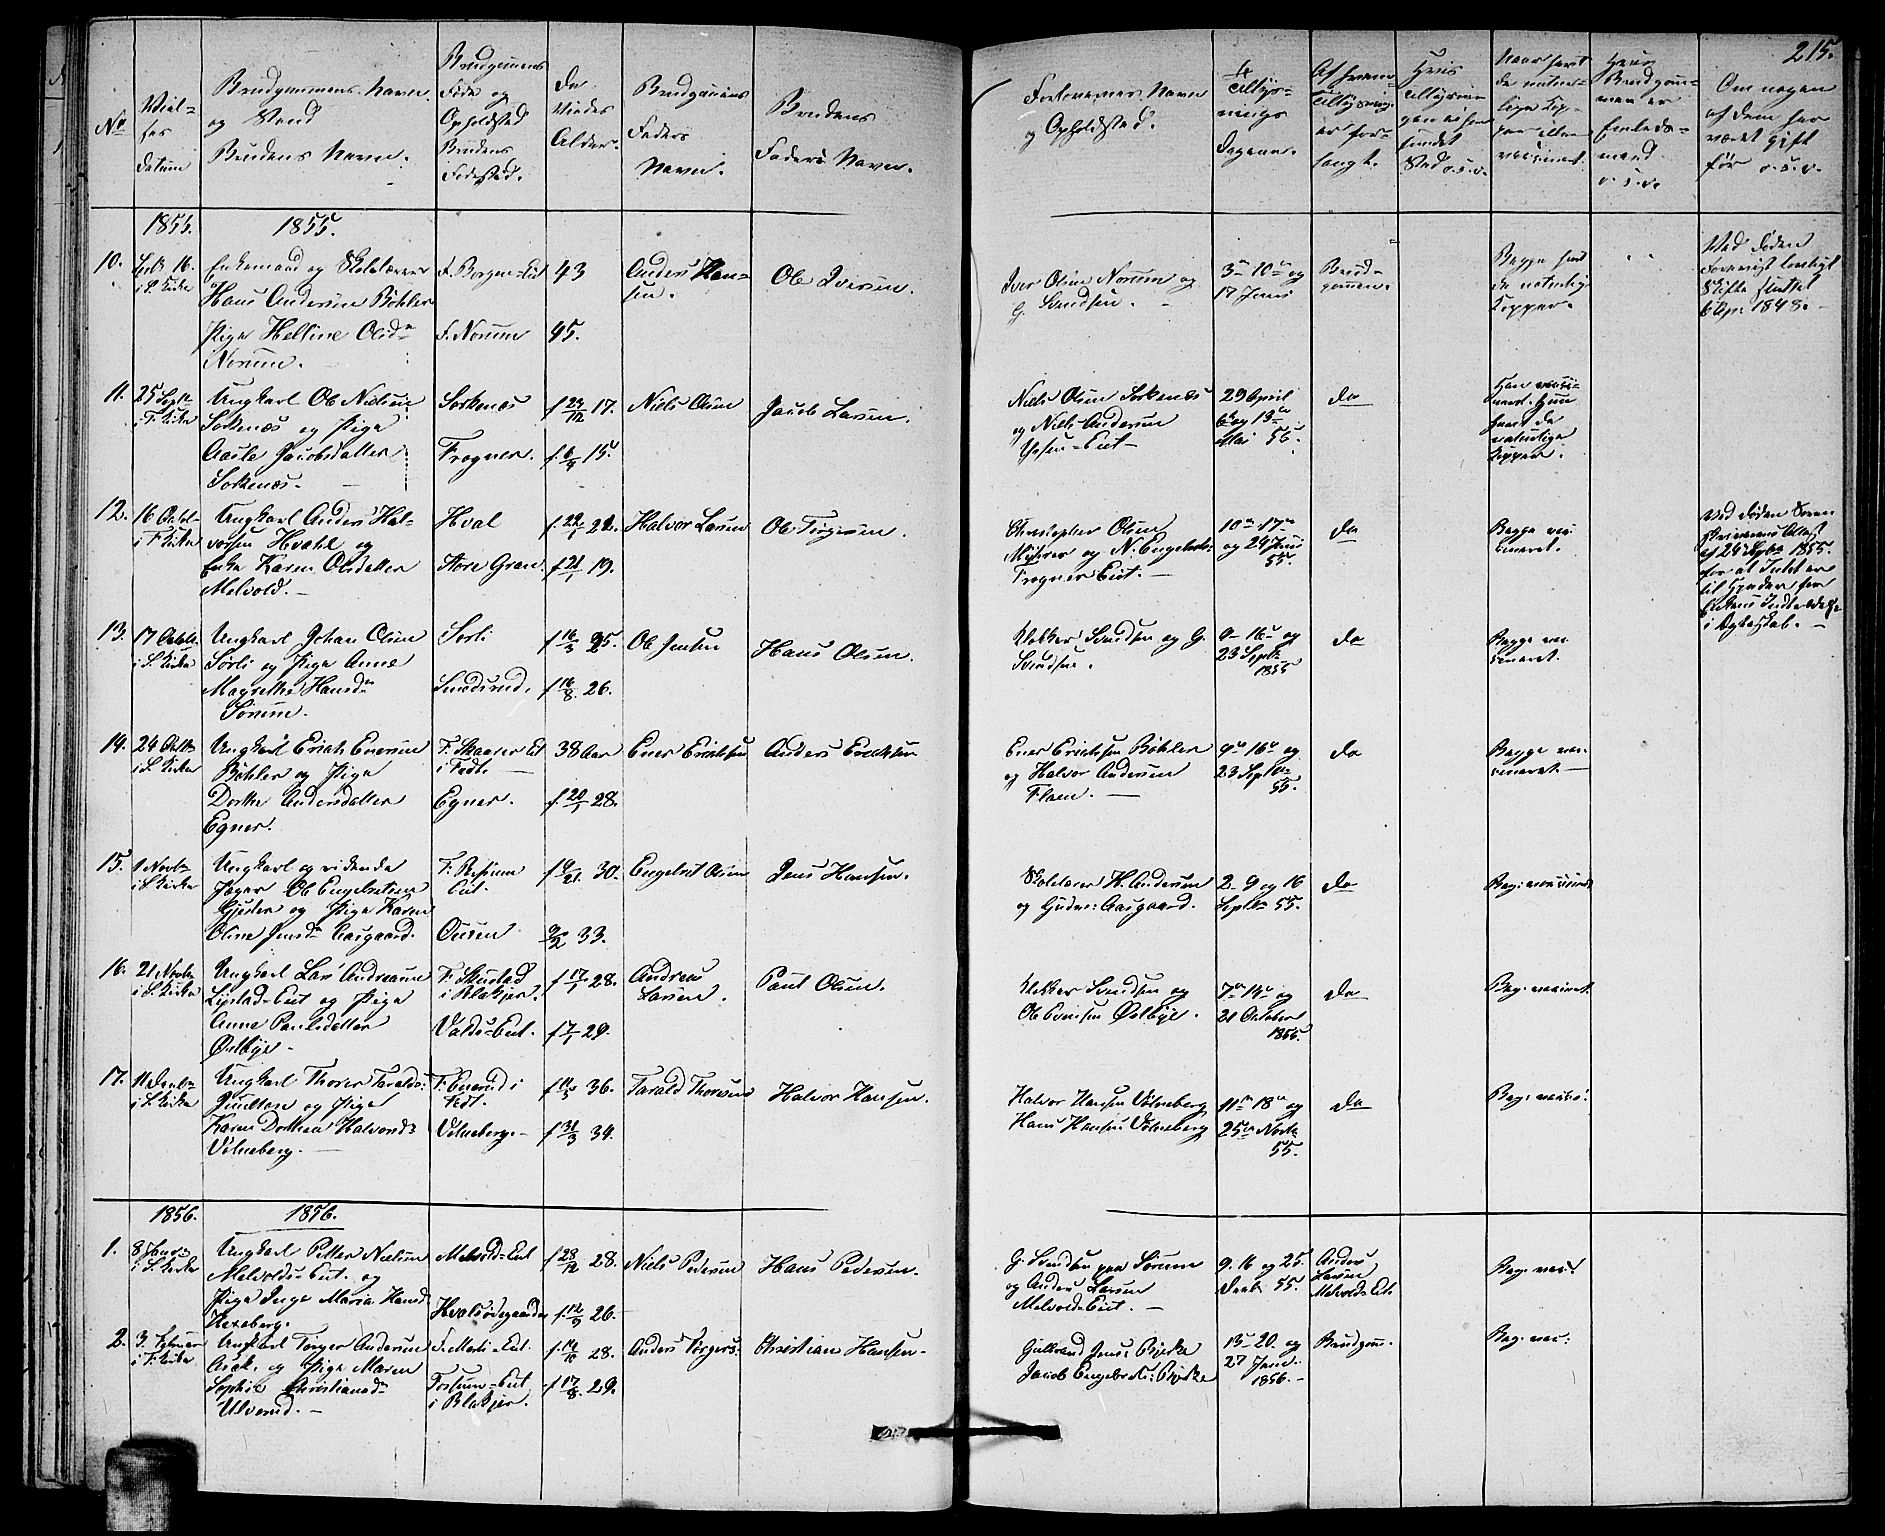 215.
No
Viel-
ses
datum
Brudgommens Navn
og Stand
Brudens Navn.
Brudgommens
Føde og
Opholdsted
Brudens
Fødested.
De
Viedes
Alder.
Brudgommens
Faders
Navn.
Brudens
Faders Navn.
Forlovernes Navn
og Opholdsted.
Tillys-
nings
Dagene.
Af hvem
Tillysning
er for-
langt.
Hvis
Tillysnin-
gen ei har
fundet
Sted o.s.v.
Naar havt
de natur-
lige Kop-
per eller
vaccineret.
Hvis
Brudgom-
men er
Enkle-
mand
o.s.v.
Om nogen
af dem har
været gift
før o.s.v.
1855.
1855.
10.
16.
i S. Kirke
Enkemand og Skolelærer
Hans Andersen Bøhler
Pige Helline Olsd.
Norum.
F. Borgen-Eit
F. Norum
43
45.
Anders Han-
sen.
Ole Iversen.
Iver Olsen Norum og
G. Svendsen.
3 10 og
17 Juni
Brud-
gommen.
Begge havt
de naturlige
Kopper.
Ved døden
Skifte sluttet
6 Apr. 1848.
11.
25 Sept
i F. Kirke
Ungkarl Ole Nielsen
Sorkenæs og Pige
Aaste Jacobsdatter
Sorkenæs.
Sorkenæs
Frogner.
f 23/12 17.
f. 6/4 15.
Niels Olsen
Jacob Larsen.
Niels Olsen Sorkenæs
og Niels Andersen
29 April
6 og 13
Mai 55.
do
Han vacci-
neret. Hun
havt de
naturlige
Kopper.
12.
16 Octob
i F Kirke
Ungkarl Anders Hal-
vorsen Hvahl og
Enke Karen Olsdatter
Melvold.
Hval
Store Gran.
f 22/1 22.
f 21/1 19.
Halvor Larsen
Ole Torgersen.
Christopher Olsen
og N. Engebrets:
Frogner Eiet.
10 17
og 24 Juni
55.
do
Begge vac-
cineret.
Ved døden Soren-
skriverens Attest
af 24 Septb 1855.
for at Intet er
til Hinder for
Enkens Indtrædelse
i Ægteskab.
13.
17 Octob.
i S. Kirke
Ungkarl Johan Olsen
Sørli og Pige Anne
Magrethe Hansd.
Sørum.
Sørli
Smedsrud.
f 16/3 25.
f 16/8 26.
Ole Jensen
Hans Olsen.
Klokker Svendsen og G.
Svendsen.
9 16 og
23 Septb
1855
do
Begge vac-
cineret.
14.
24 Octb
i S. Kirke
Ungkarl Erich Enersen
Bøhler og Pige
Dorthe Andersdatter
Egner.
F. Skaarer Eit
i Fedt.
Egner.
38 Aar
f. 20/1 28.
Ener Erichsen
Anders Erichsen
Ener Erichsen Bøhler
og Halvor Andersen
Flaen.
9 16 og
23 Septbr
55.
do
Begge vac-
cineret.
15.
1 Novb
i S Kirke
Ungkarl og ridende
Jæger Ole Engebretsen
Gjester og Pige Karen
Oline Jensd. Aasgaard.
Eit.
Ousen
f 9/21 30.
9/2 33.
Engebret Olsen
Jens Hansen.
Skolelærer H. Andersen
og Gudm: Aasgaard.
2 9 og 16
Septb 55.
do
Beg: vaccineret
16.
21 Novbr
i S. Kirke
Ungkarl Lars Andreasen
Lystad-Eiet og Pige
Anne Paulsdatter
Østbye
F. Skustad
i Blakjer.
Valds-Eit.
f 17/1 28.
f 7/1 29.
Andreas
Larsen.
Paul Olsen.
Klokker Svendsen og
Ole Evensen Østbye.
7 14 og
21 October
1855.
do
Beg: vaccineret.
17.
11 Decb
i S. Kirke
Ungkarl Thorer Taralds:
og Pige
Karen Dorthea Halvorsd.
Vølneberg.
F. Enerud i
Fedt.
Vølneberg.
f 11/5 36.
f 31/3 34.
Tarald Thoresen
Halvor Hansen.
Halvor Hansen Vølneberg
Hans Hansen Vølneberg
11 18 og
25 Novb
55.
do
Beg: vacci:
1856.
1856.
1.
8 Janr
i S. Kirke
Ungkarl Petter Nielsen
Melvolds-Eiet. og
Pige Inge Maria Hansd.
Hexeberg.
Melvold-Eiet
Hvalsødegaarden
f 28/12 28.
f. 12/9 26.
Niels Pedersen
Hans Pedersen.
G. Svendsen paa Sørum
og Anders Larsen
Melvold-Eiet.
9. 16 og 25.
Decb 55.
Anders
Larsen
Melvold-Eit.
Beg: vac:
2.
3 Februar
i F. Kirke
Ungkarl Torger Andersen
Asak. og Pige Maren
Sophie Christiansd.
Ulverud.
F. Mork-Eit.
Tostum-Eit
i Blakjer.
f. 14/10 28.
f 17/8 29.
Anders Torgers:
Christian Hansen.
Gulbrand Jens: Bjerke
Jacob Engebrets: Bjerke
13 20 og
27 Janr.
1856.
Brudgom.
Beg: vac: